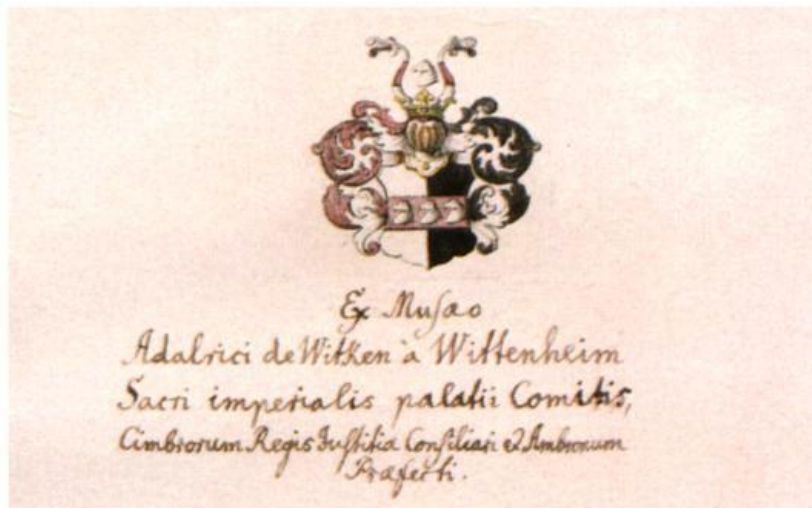 Ex Musæo
Adalrici de Witken à Wittenheim
Sacri imperialis palatii Comitis,
Cimbrorum Regis Justitiæ Consiliari et Ambronum
Præfecti.